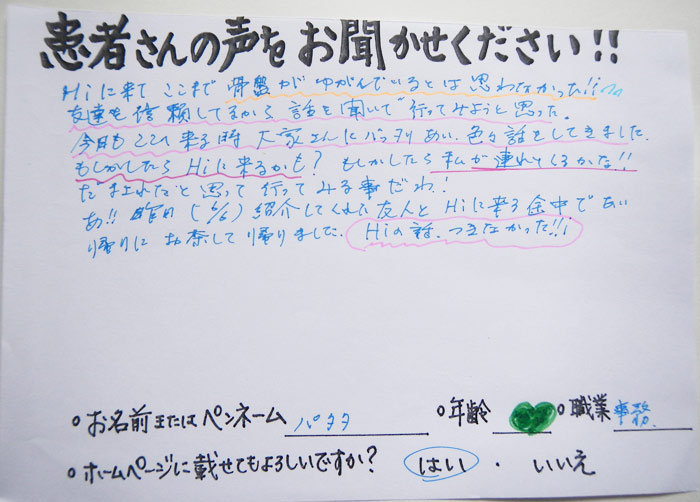 患者さんの声をお聞かせください!!
Hiに来て ここまで 骨盤が ゆがんでいるとは思わなかった!!
友達を信頼してるから 話を聞いて 行ってみようと思った。
今日も ここに 来る時 大家さんにバッタリ あい、色々話をしてきました。
もしかしたら Hiに来るかも? もしかしたら 私が連れてくるかな!!
だまされたと思って 行ってみる事だわ!
あ!! 昨日(6/6) 紹介してくれた友人と Hiに来る途中であい
帰りに お茶して帰りました。 Hiの話、つきなかった!!
お名前またはペンネーム パタタ 年齢 職業 事務
ホームページに載せてもよろしいですか? はい ・ いいえ